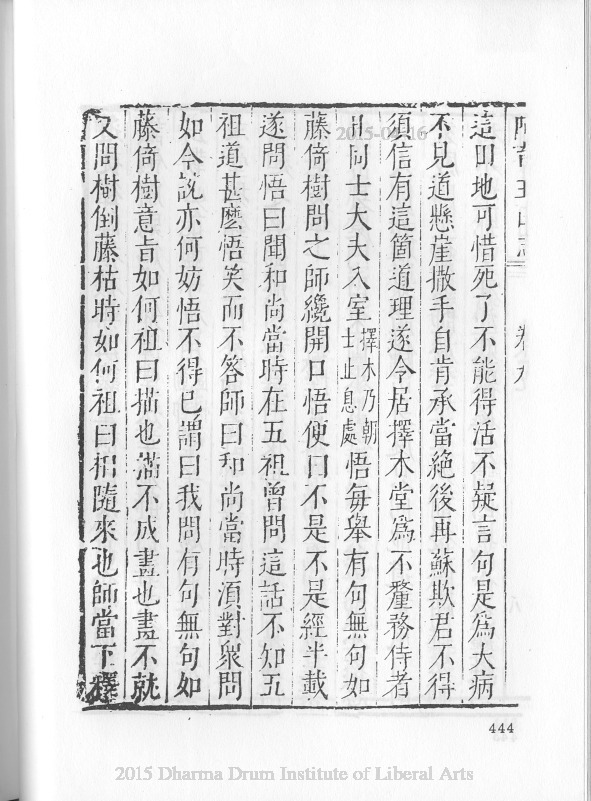 阿育王山志 卷九
這田地可惜死了不能得活不疑言句是爲大病
不見道懸崖撒手自肯承當絕後再蘇欺君不得
須信有這箇道理遂令居擇木堂爲不釐務侍者
日同士大夫入室擇木乃朝士止息處悟每舉有句無句如
藤倚樹問之師纔開口悟便曰不是不是經半載
遂問悟曰聞和尚當時在五祖曾問這話不知五
祖道甚麽悟笑而不答師曰和尚當時須對衆問
如今說亦何妨悟不得已謂曰我問有句無句如
藤倚樹意旨如何祖曰描也描不成畫也畫不就
又問樹倒藤枯時如何祖曰相隨來也師當下釋
444
2015 Dharma Drum Institute of Liberal Arts